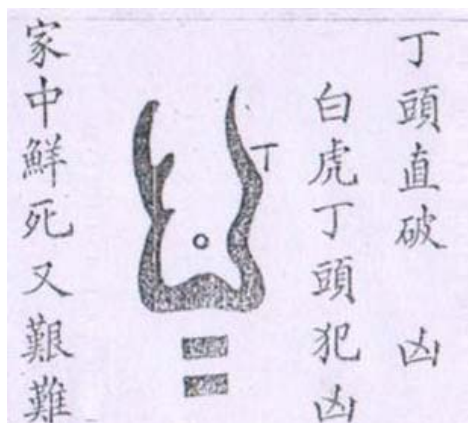 丁頭直破 凶
白虎丁頭犯凶
丁
家中鮮死又艱難